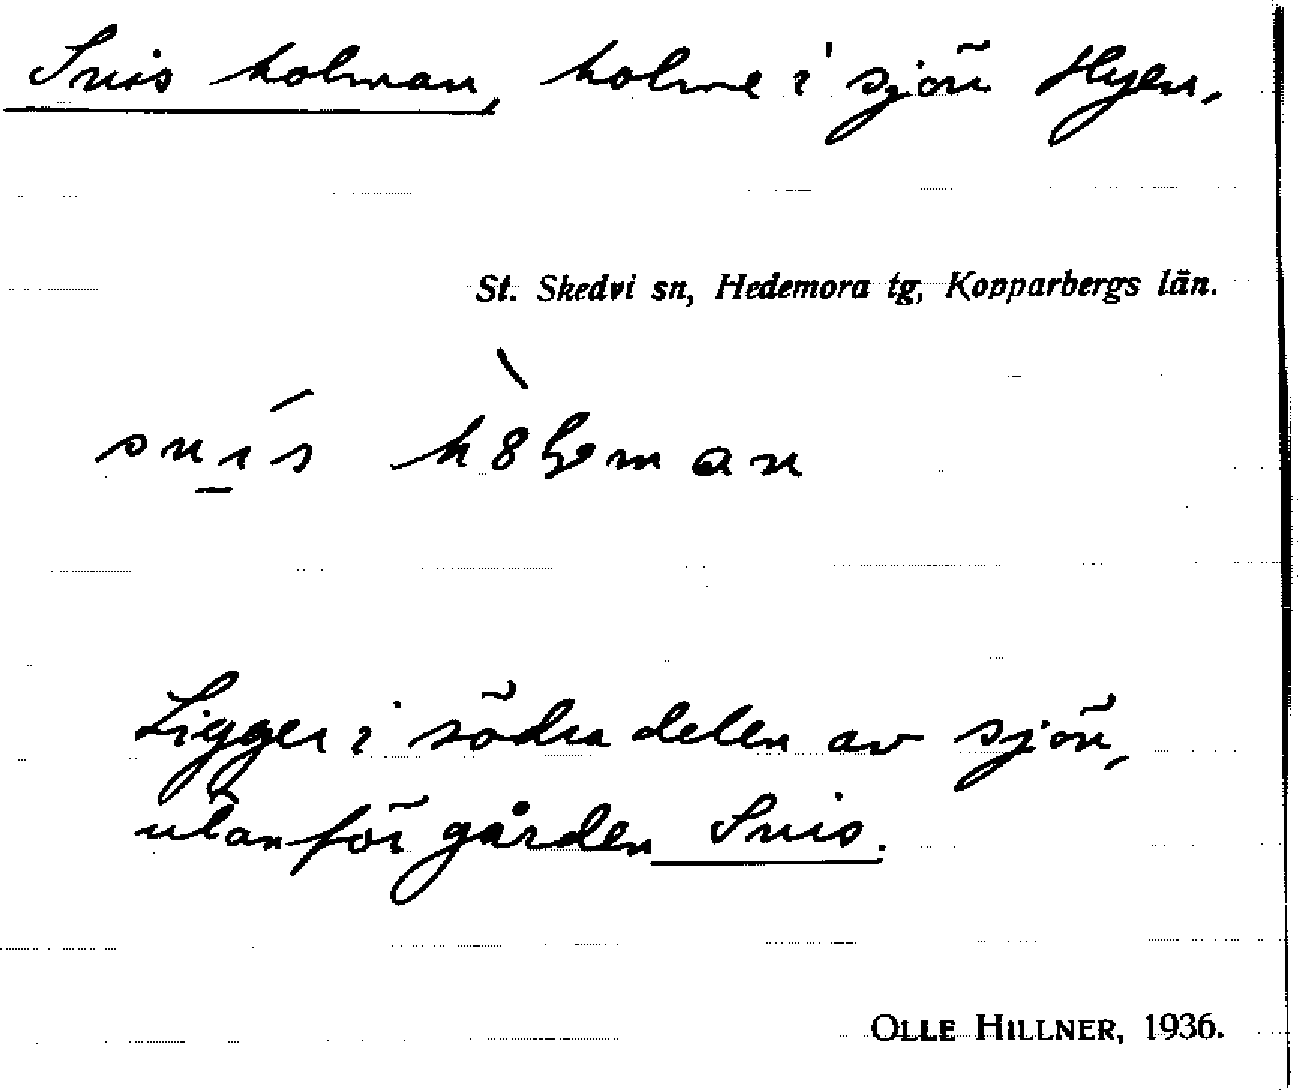 Snis holmar, holme i sjön Hyen,
St. Skedvi sn, Hedemora tg, Kopparbergs län.
Ligger i södra delen av sjön,
utanför gården Snis.
OLLE HILLNER, 1936.